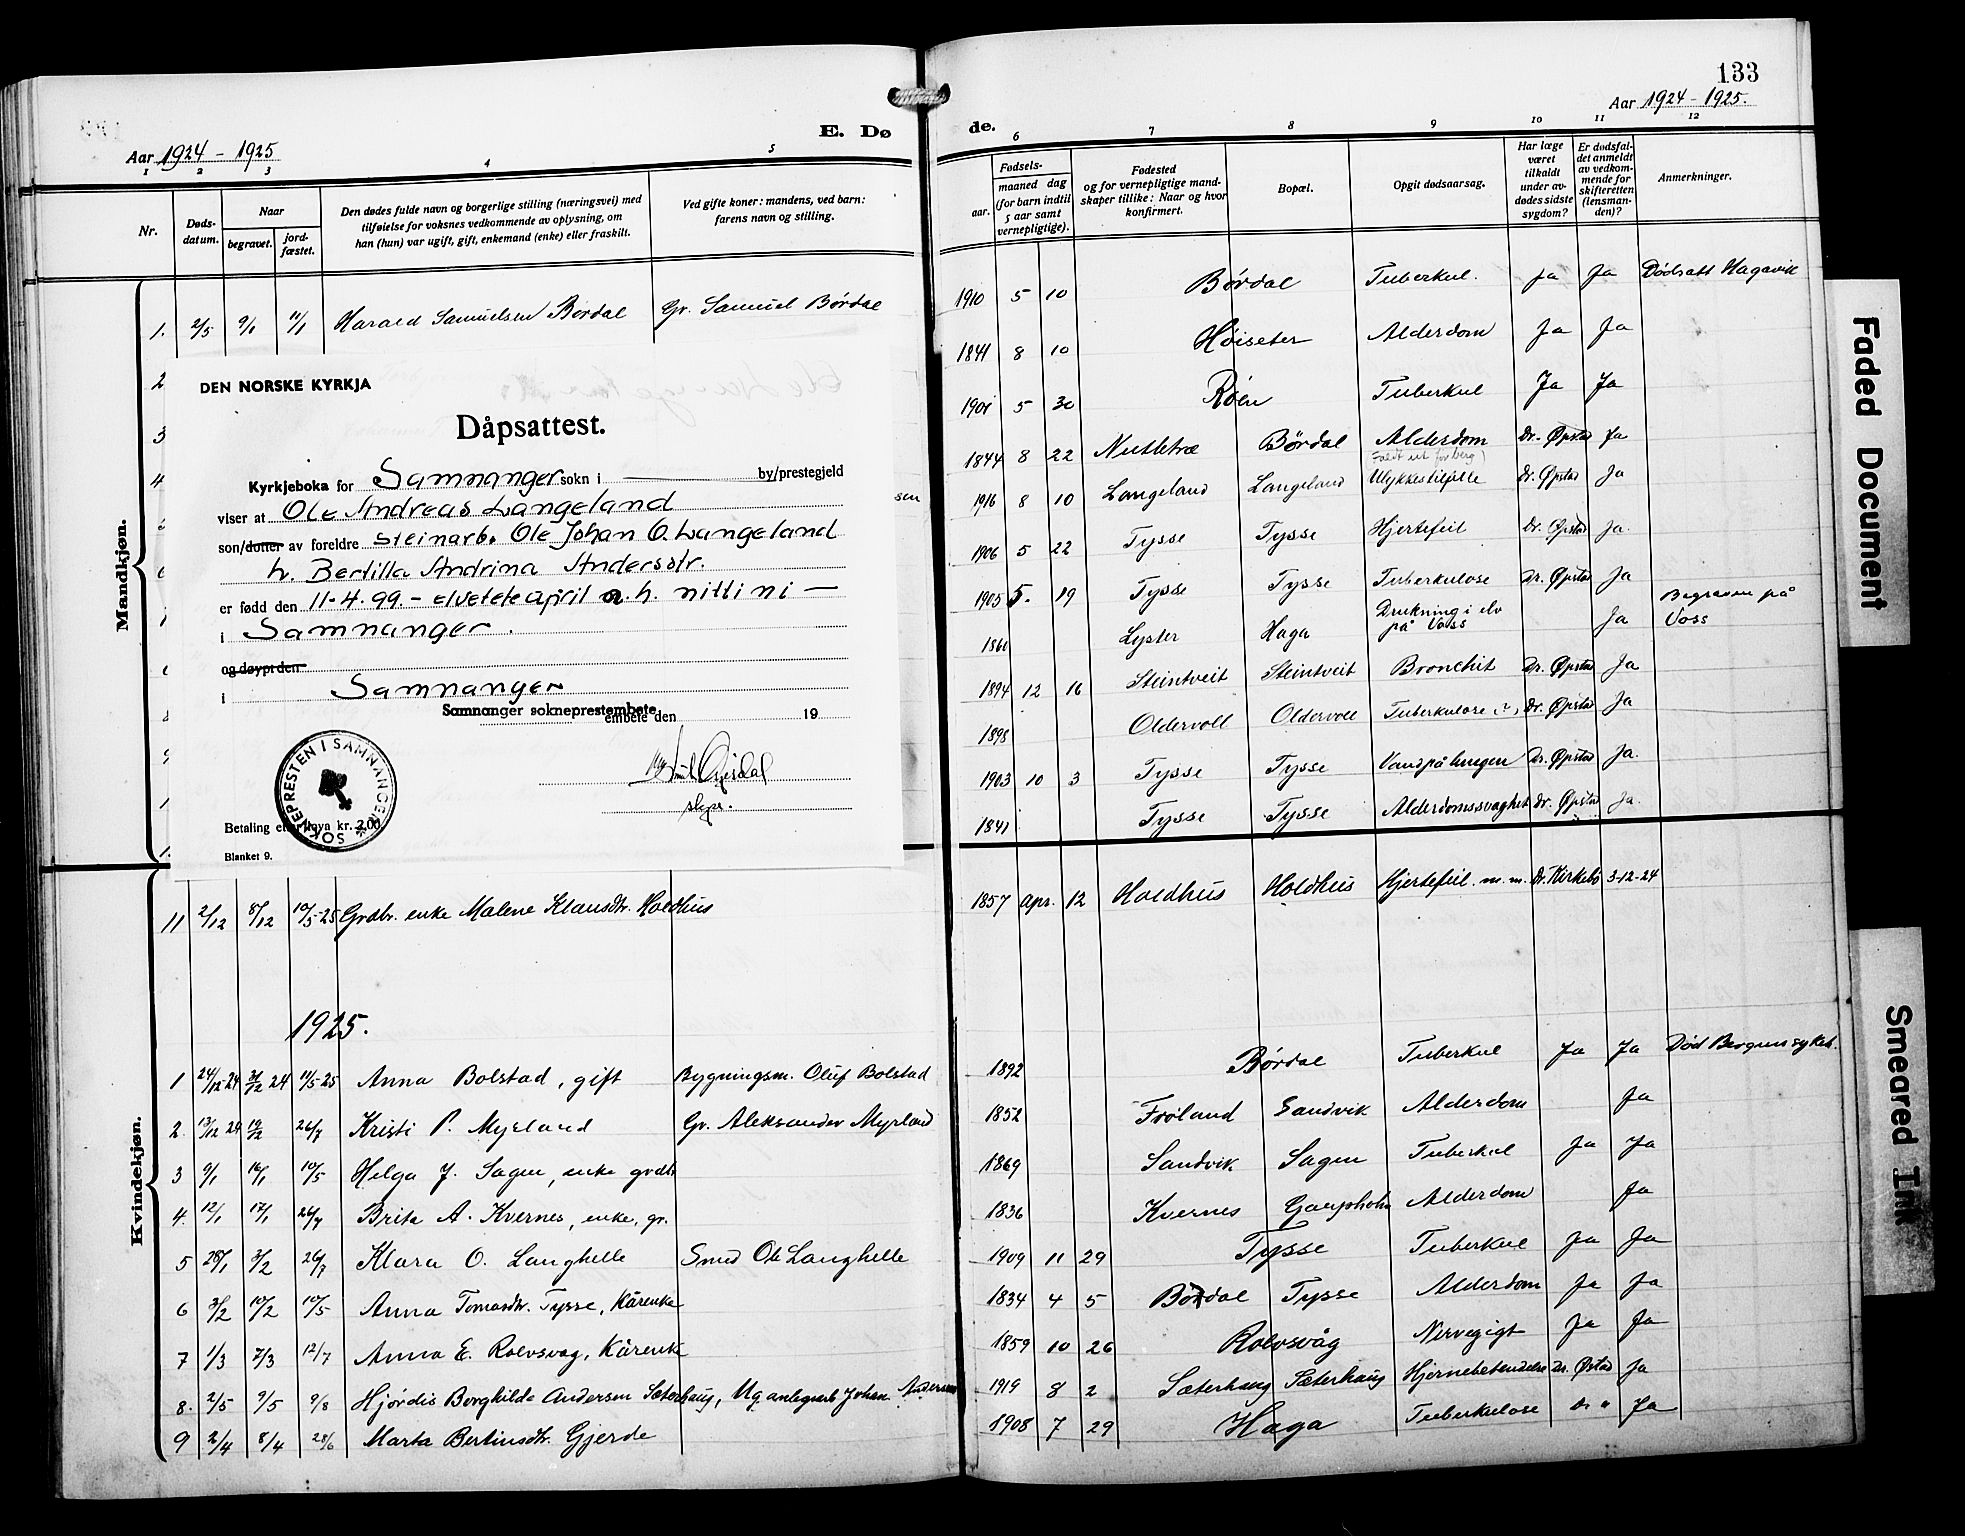 133
Aar 1924 - 1925
E. Dø
de.
Aar 1924 - 1925.
1 2 3 4 5
6 7 8 9 10 11 12
Nr.
Døds-
datum.
Naar
begravet.
jord-
fæstet.
Den dødes fulde navn og borgerlige stilling (næringsvei) med
tilføielse for voksnes vedkommende av oplysning, om
han (hun) var ugift, gift, enkemand (enke) eller fraskilt.
Ved gifte koner: mandens, ved barn:
farens navn og stilling.
Fødsels-
aar.
maaned dag
(for barn indtil
5 aar samt
vernepligtige).
Fødested
og for vernepligtige mand-
skaper tillike: Naar og hvor
konfirmert.
Bopæl.
Opgit dødsaarsag.
Har læge
været
tilkaldt
under av-
dødes sidste
sygdom?
Er dødsfal-
det anmeldt
av vedkom-
mende for
skifteretten
(lensman-
den)?
Anmerkninger.
Mandkjøn.
1. 2/5 9/1 11/1 Harald Samuelsen Børdal Gr. Samuel Børdal
2
3
4
DEN NORSKE KYRKJA
Dåpsattest.
Kyrkjeboka for Samnanger sokn i — by/prestegjeld
viser at Ole Andreas Langeland
son/dotter av foreldre steinarb. Ole Johan O. Langeland
h. Bertilla Andrina Andersdtr.
er fødd den 11-4.99 - elvete april a.h. nitti ni —
i Samnanger.
og døypt den
i Samnanger
Samnanger sokneprestembete
embete den 19
skpr.
SOKNEPRESTEN I SAMNANGER
Betaling etter lova kr. 2.00
Blanket 9.
sen
1910 5 10 Børdal Tuberkul. Ja Ja Dødsatt Hagavik
1841 8 10 Høiseter Alderdom Ja Ja
1901 5 30 Røen Tuberkul Ja Ja
1844 8 22 Nutletræ Børdal Alderdom Dr. Øpstad Ja
Faldt ut for berg)
1916 8 10 Langeland Langeland Ulykkestilfelle Dr. Øpstad Ja
1906 5 22 Tysse Tysse Hjertefeil Dr. Øpstad Ja.
1905 5. 19 Tysse Tysse Tuberkulose Dr. Øpstad Ja
1860 Lyster Haga Drukning i elv på Voss Ja Begraven på Voss
1894 12 16 Steintveit Steintveit Bronchit Dr. Øpstad Ja
1898 Oldervoll Oldervoll Tuberkulose (?) Dr. Øpstad Ja
1903 10 3 Tysse Tysse Vand på lungen Dr. Øpstad Ja.
1841 Tysse Tysse Alderdomssvaghet Dr. Øpstad Ja.
Kvindekjøn.
11 2/12 8/12 10/5-25 Grdbr. enke Malene Klausdtr. Holdhus 1857 Apr. 12 Holdhus Holdhus Hjertefeil m.m. Dr. Kirkebø 3-12-24
1925.
1 24/12-24 31/12 24 11/5-25 Anna Bolstad, gift Bygningsm. Oluf Bolstad 1892 Børdal Tuberkul Ja Ja Død Bergens sykeh.
2. 13/12 24 19/12 26/7 Kristi P. Myrland Gr. Aleksander Myrland 1852 Frøland Sandvik Alderdom Ja
3 9/1 16/1 10/5 Helga J. Sagen, enke grdbr 1869 Sandvik Sagen Tuberkul Ja Ja
4. 12/1 17/1 26/7 Brita A. Kvernes, enke, gr. 1836 Kvernes Gaupholm Alderdom Ja
5 28/1 3/2 26/7 Klara O. Langhelle Smed Ole Langhelle 1909 11 29 Tysse Tuberkul Ja Ja
6 3/2 10/2 10/5 Anna Tomasdtr. Tysse, Kårenke 1834 4 5 Børdal Tysse Alderdom Ja Ja
7 1/3 7/3 12/7 Anna E. Rolvsvag, Kårenke 1859 10 26 Rolvsvåg Nervegigt Ja Ja
8. 2/5 9/5 9/8 Hjørdis Borghilde Andersen Sæterhaug, Ug. anlegsarb Johan Andersen 1919 8 2 Sæterhaug Sæterhaug Hjernebetendelse Dr. Østad Ja
9 2/4 8/4 28/6 Marta Bertinsdtr. Gjerde 1908 7 29 Haga Tuberkulose Dr " Ja
Faded Document
Smeared Ink